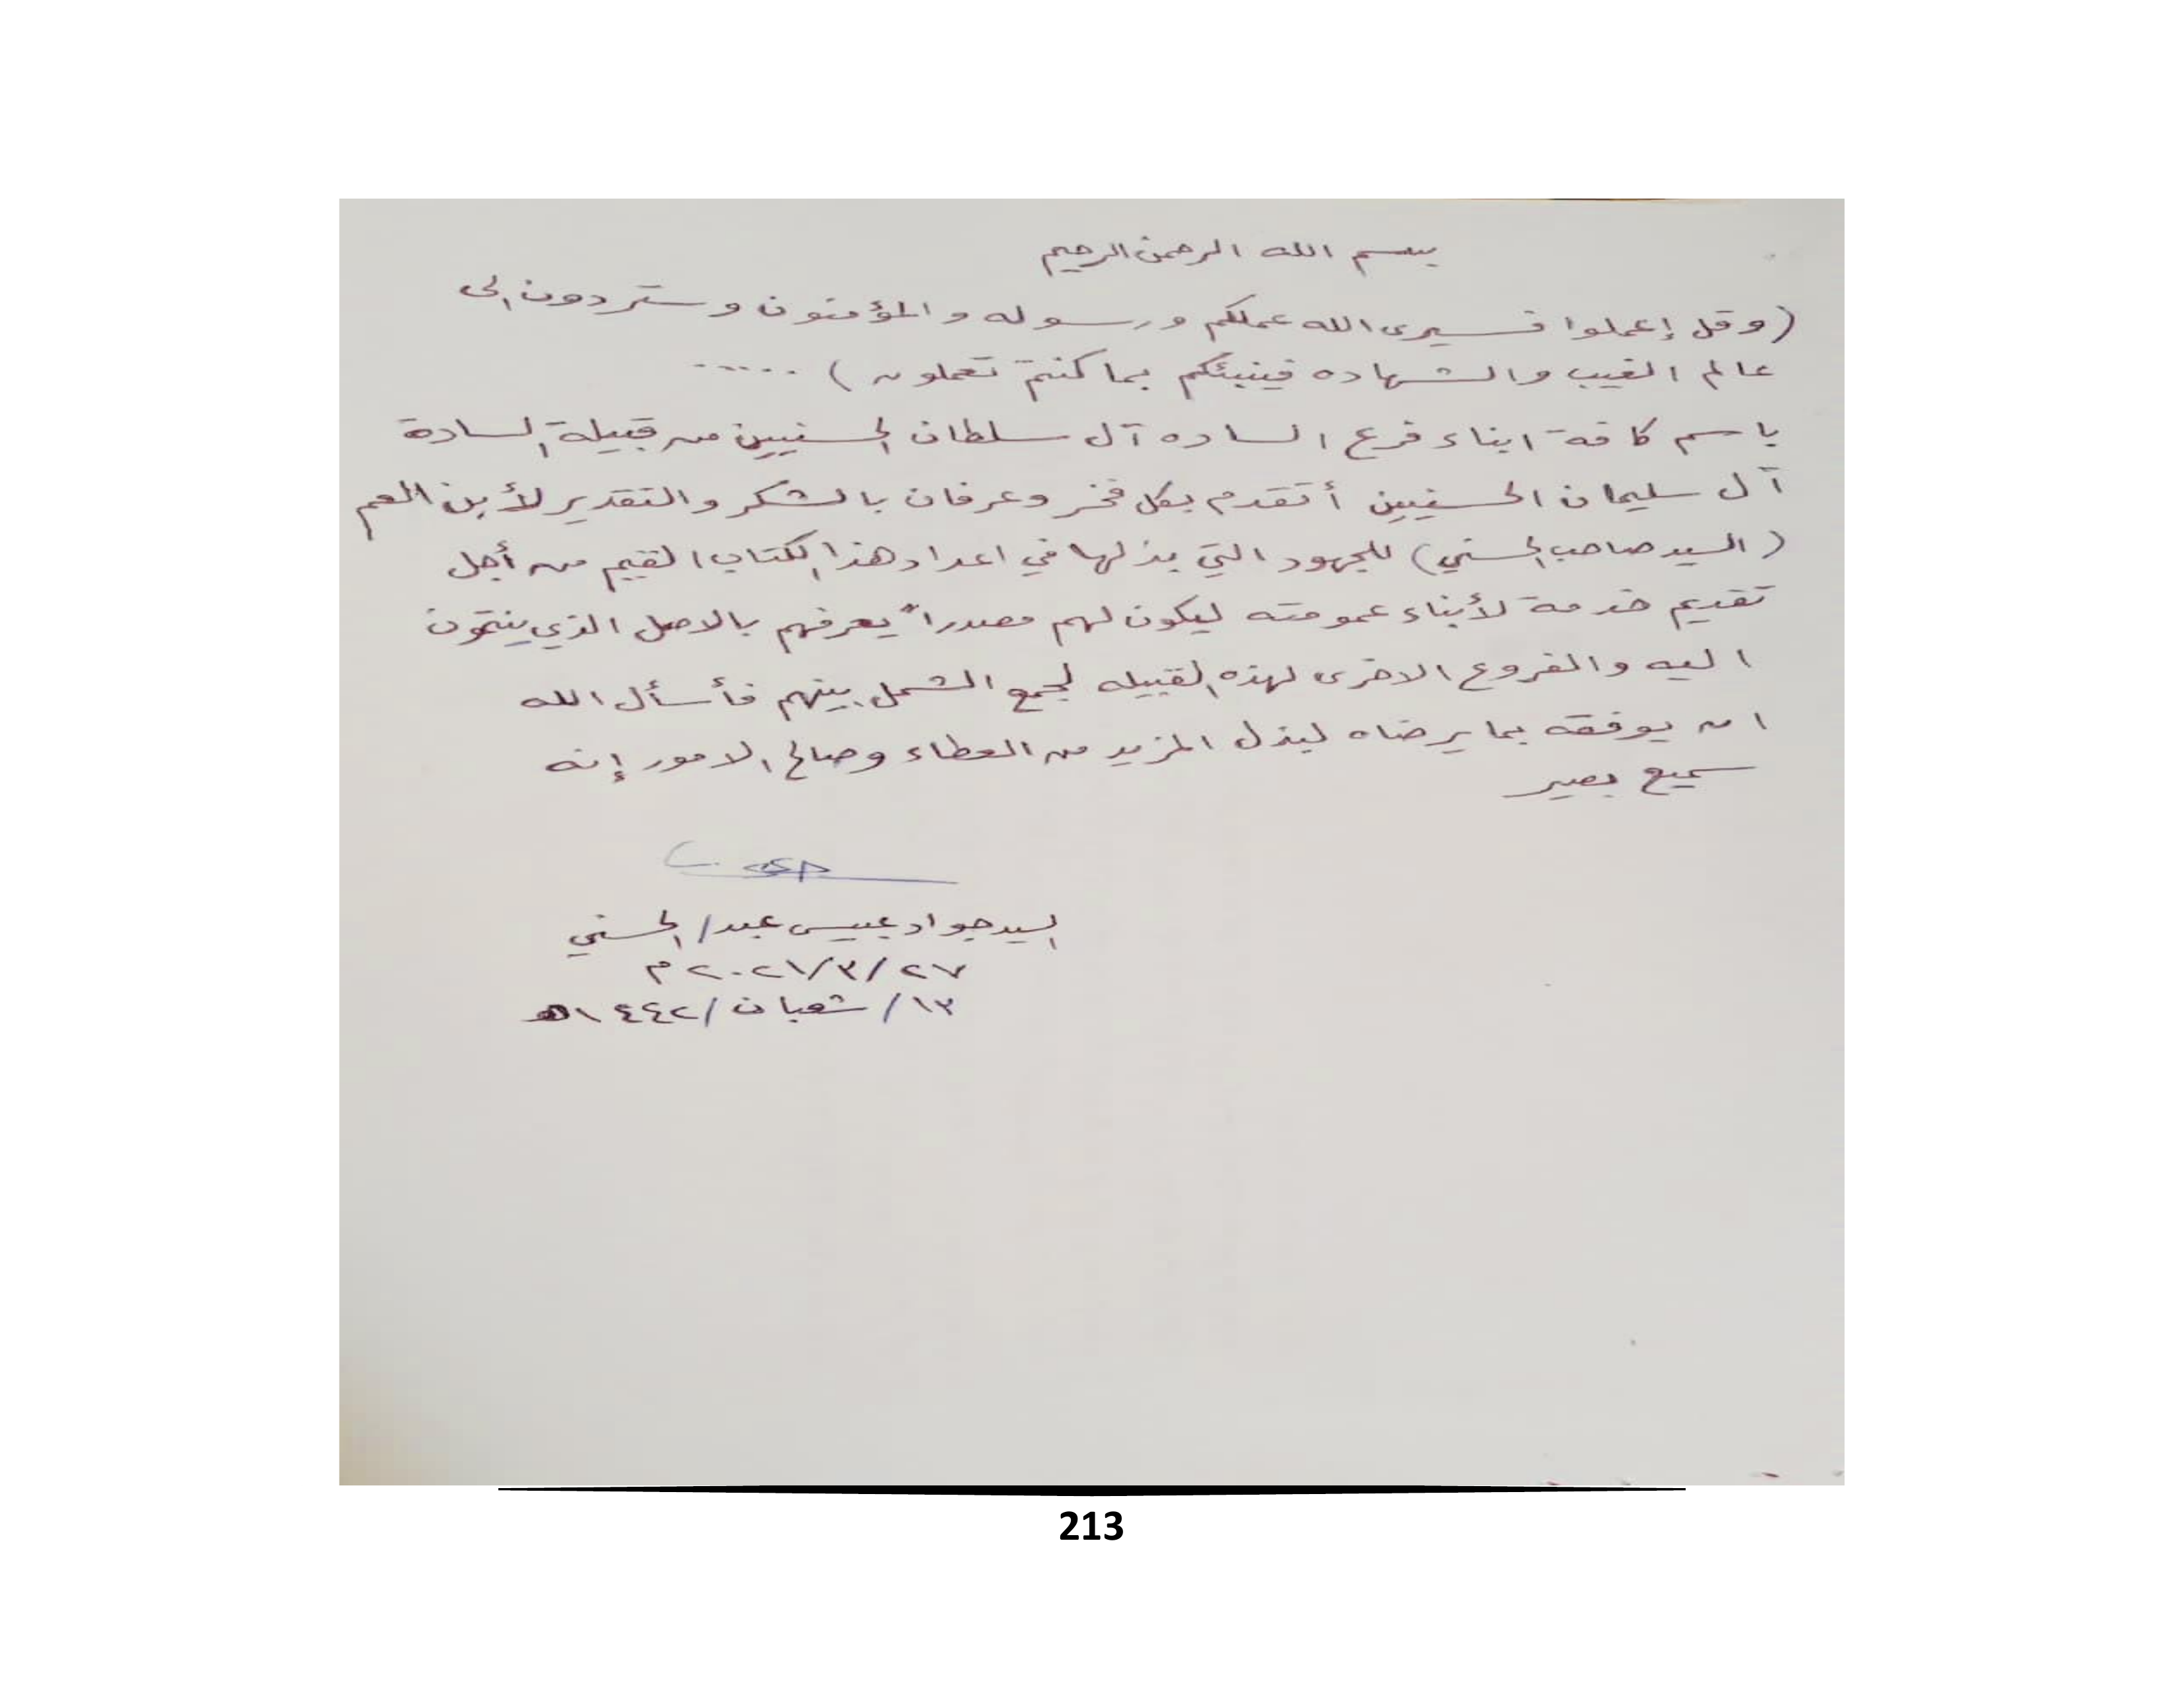 بسم الله الرحمن الرحيم
(وقل إعملوا فسيرى الله عملكم ورسوله والمؤمنون وستردون الى
عالم الغيب والشهاده فينبئكم بما كنتم تعملون) ......
باسم كافة ابناء فرع الساده آل سلطان الحسنيين من قبيلة السادة
آل سليمان الحسنيين أتقدم بكل فخر وعرفان بالشكر والتقدير لأبن العم
(السيد صاحب الحسني) للجهود التي بذلها في اعداد هذا الكتاب القيم من أجل
تقديم خدمة لأبناء عمومته ليكون لهم مصدراً يعرفهم بالاصل الذي ينتمون
اليه والفروع الاخرى لهذه القبيله لجمع الشمل بينهم فأسأل الله
ان يوفقه بما يرضاه لبذل المزيد من العطاء وصالح الامور إنه
سميع بصير
السيد جواد عبيس عبد / الحسني
٢٧/٣/٢٠٢١م
١٣/ شعبان /١٤٤٢هـ
213